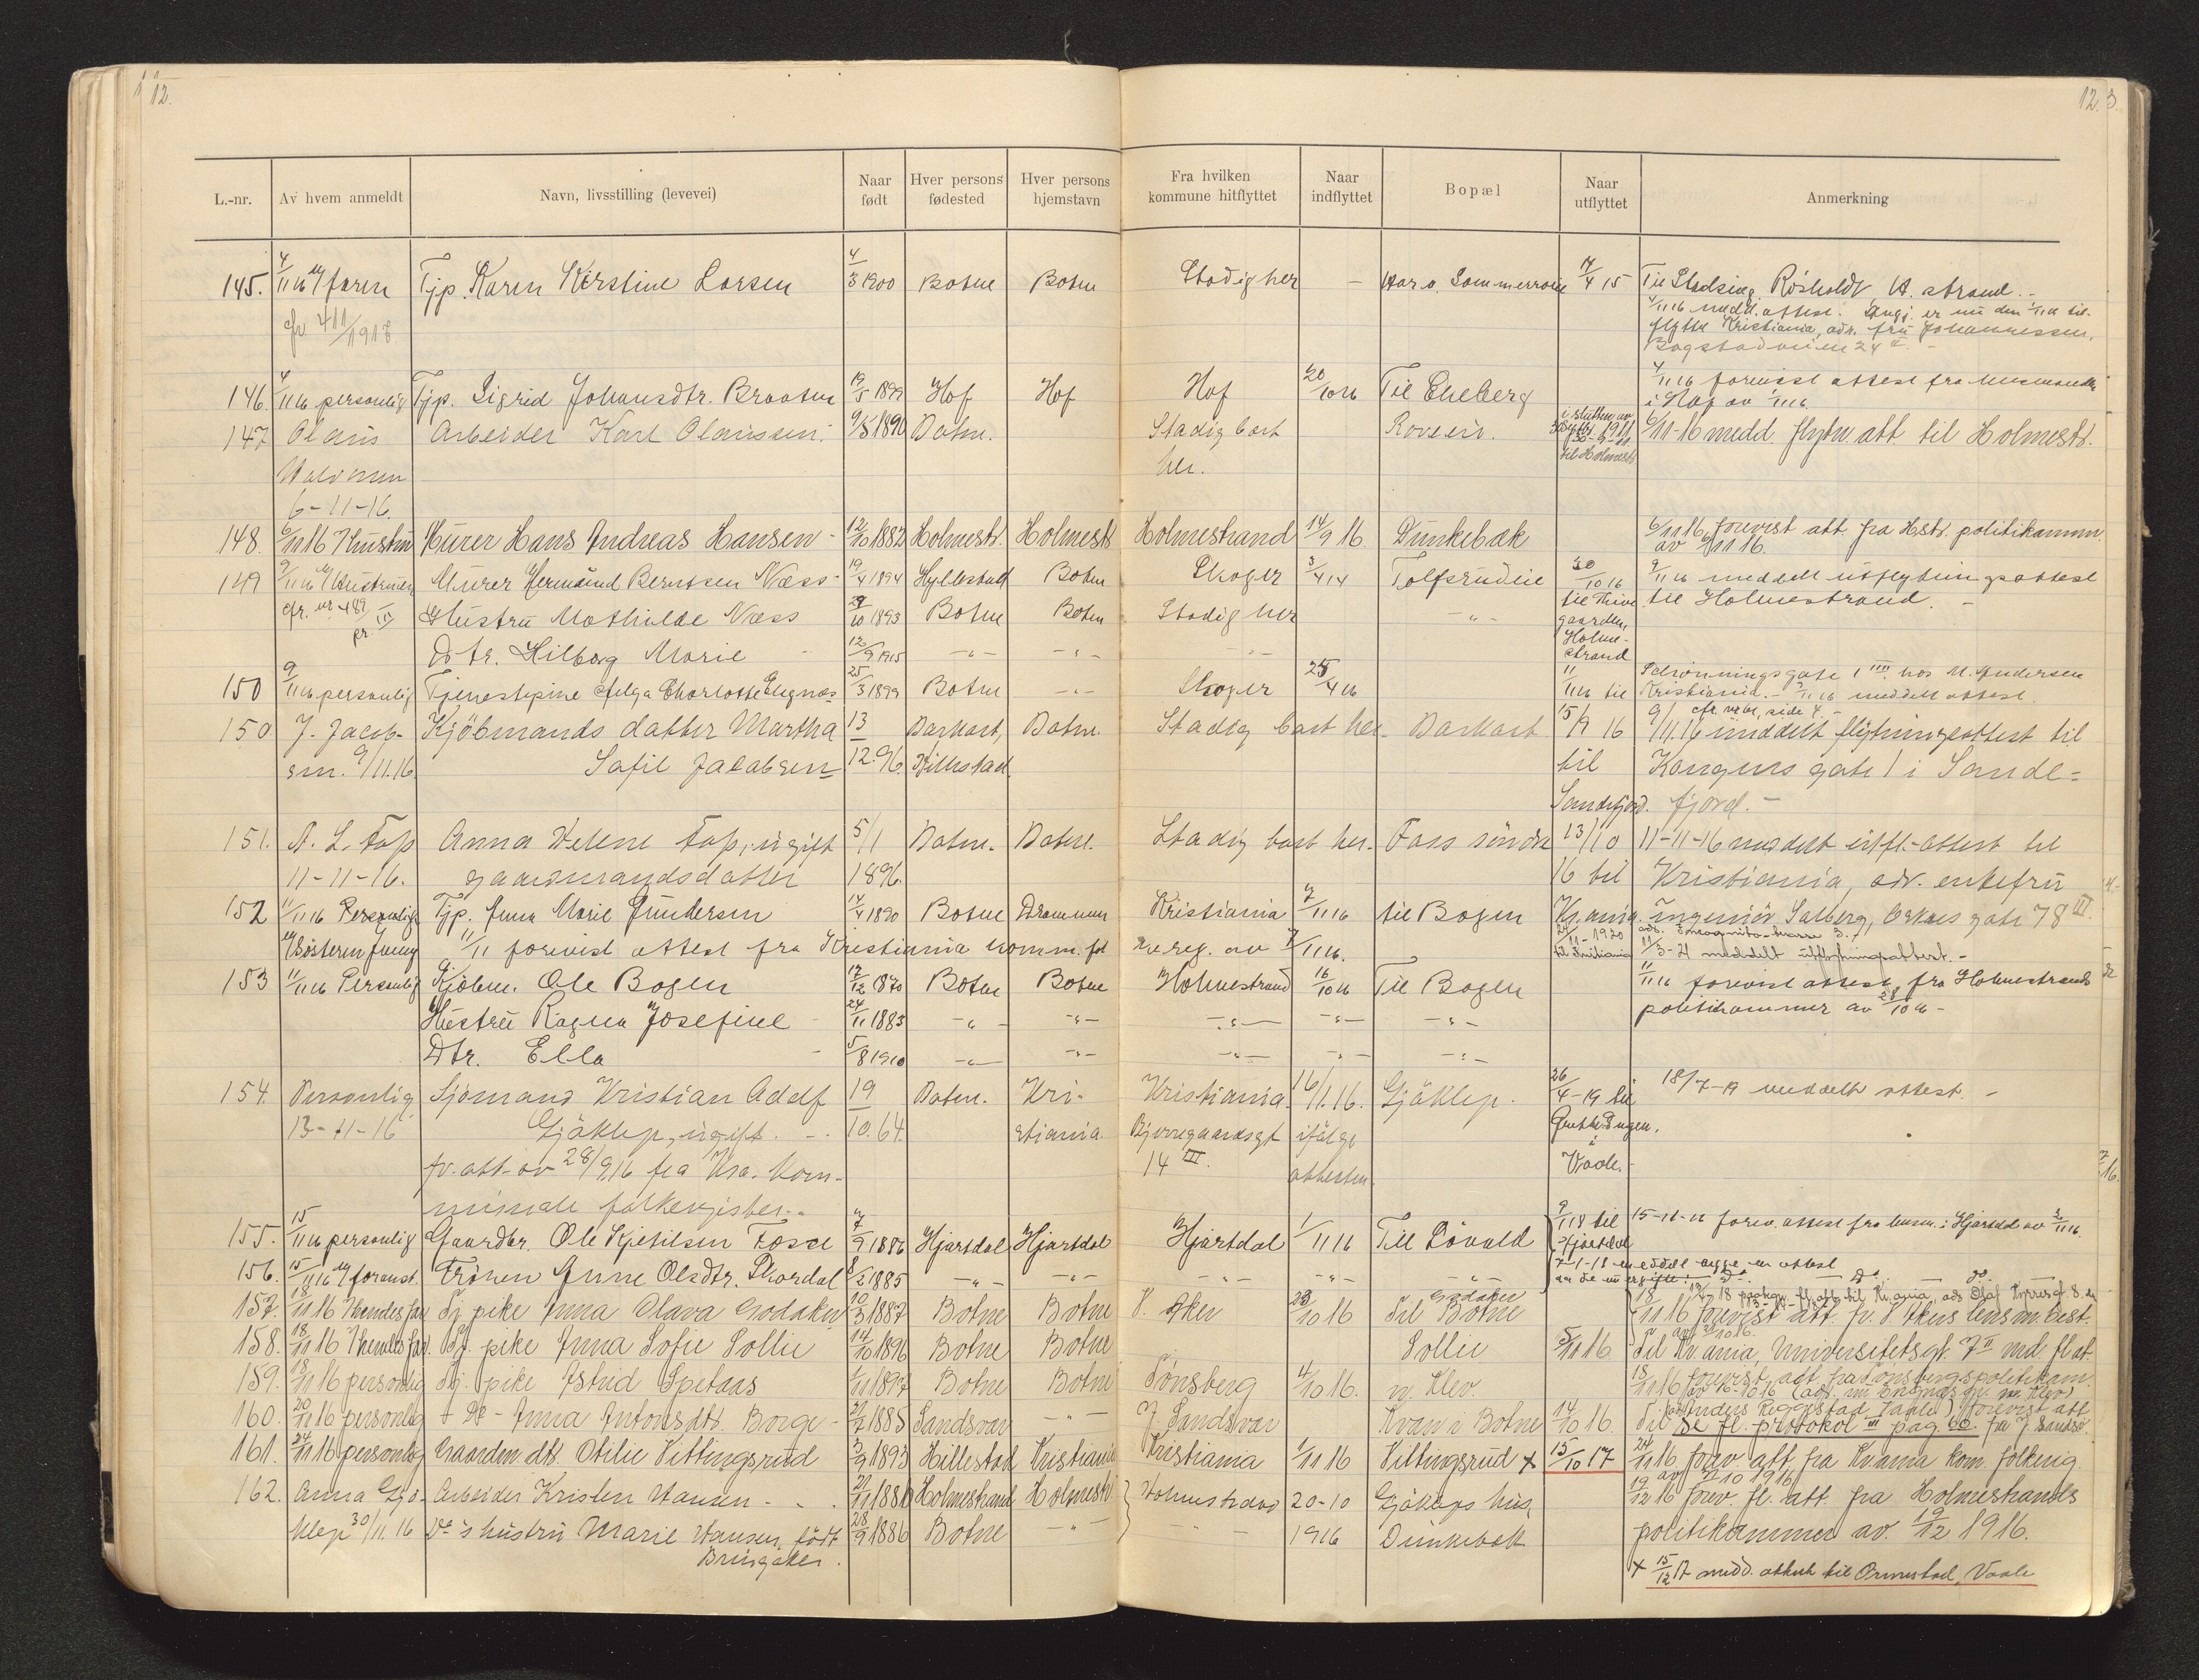 12.
12.
L.-nr. Av hvem anmeldt Navn, livsstilling (levevei) Naar født Hver persons fødested Hver persons hjemstavn Fra hvilken kommune hitflyttet Naar indflyttet Bopæl Naar utflyttet Anmerkning
145. 4/11 16 v/ faren Tjp. Karen Kirstine Larsen 4/3 1900 Botne Botne Stadig her - Sommerroe 17/4 15 Til Røsholdt, H. strand.
4/11 16 medd. attest. er nu den til-
flyttet Kristiania, adr. fru Johannessen,
Bogstadveien 24
146. 4/11 16 personlig Tjp. Sigrid Johansdtr. Braaten 19/5 1899 Hof Hof Hof 20/10 16 Til Eheberg 4/11 16 forevist attest fra
i Hof av 1/11 16
147 Olaus Arbeider Karl Olaussen. 9/8 1890 Botne. Stadig bart Roveen. i slutten av 1911 6/11-16 medd. flytn. att til Holmestr.
her. til Holmestr
6-11-16.
148. 6/11 16 Hustru Murer Hans Andreas Hansen - 12/10 1882 Holmestr. Holmestr Holmestrand 14/9 16. Dunkebæk 6/11 16 forevist att. fra Hstr. politikamm.
av 6/11 16.
149 9/11 16 v/ Hustruen Murer Hermund Berntsen Næss - 19/4 1894 Hyllestad Botne Skoger 3/4 14 Tolfsrudeie 30/10 16 9/11 16 meddelt utflytningsattest
Hustru Mathilde Næss 29/10 1893 Botne Botne Stadig her -"- til Thive til Holmestrand. -
gaarden,
Dtr. Hilborg Marie - 12/9 1915 -"- -"- -"- Holme-
strand
150 9/11 16 personlig Tjenestepine Helga Charlotte Engnæs 25/3 1899 Botne -"- Skoger 25/4 16 11/11 16 til Schønningsgate 1 hos M. Andersen
Kristiania. - 9/11 16 meddelt attest
150 J. Jacob- Kjöbmands datter Martha 13 Botne. Stadig bart her. 15/9 16 9/11.16 meddelt flytningsattest til
sen. 9/11.16 Sofie Jacobsen 12.96. Hillestad til Kongens gate 1 i Sande=
Sandefjord. fjord. -
151. A. L. Fos Anna Helene Fos, ugift 5/1 Botne. Botne. Stadig bart her. Foss söndre 13/10 11-11-16 meddelt utfl.-attest til
11-11-16. gaardmandsdatter 1896. 16 til Kristiania, adr. enkefru
152 11/11 16 Personlig Tjp. Anna Marie Gundersen 14/4 1890 Botne Drammen Kristiania 7/11 16 til Bogen Kr.ania. Ingeniör Salberg, Oskars gate 78 III.
v/ Søsteren Jenny 11/11 forevist attest fra Kristiania komm. fol
ke reg. av 7/11 16. 24/11-1920 adr. Incognito-terrasse 3.
til Kristiania 11/3-21 meddelt utflytningsattest. -
153 11/11 16 Personlig Kjöbm. Ole Bogen 17/12 1870 Botne Botne Holmestrand 16/10 16 Til Bogen 11/11 16 forevist attest fra Holmestrands
Hustru Ragna Josefine 24/11 1883 -"- -"- -"- -"- -"- politikammer av 28/10 16 -
Dtr. Ella - 5/8 1910 -"- -"- -"- -"- -"-
154. Personlig Sjömand Kristian Adolf 19 Botne. Kri- Kristiania 16/11.16. Gjöklep. 26/4-19 til 18/7-19 meddelt attest. -
13-11-16 Gjöklep, ugift. 10.64. stiania. Bjerregaardsgt ifølge
14 III. attesten i
Vaale.
fv. att. av 28/9.16 fra Kra. Kom-
munale folkeregister.
155. 15/11 16 personlig Gaardbr. Ole Kjetilsen Fosse 7/9 1886 Hjartdal Hjartdal Hjartdal 1/11 16 Till Lövald 9/1 18 til Hjartdal 15-11-16 forev. attest fra i Hjartdal av 2/11 16.
156. 15/11 16 v/ forenst. Frøken Anne Olsdtr. Skordal 8/2 1885 -"- -"- -"- -"- -"-
157. 18/11 16 Hendes far Tj. pike Anna Olava Godaker 10/3 1887 Botne Botne V. Aker 23/10 16 Til Godaker Botne 18/11 16 forevist att. fr. V. Akers lensm. best.
av 23/10 16.
158. 18/11 16 Hendes far. Tj. pike Anna Sofie Sollie 14/10 1896 Botne Botne Sollie 5/11 16 Til Kr.ania, Universitetsgt. 7 II md. fl. at.
159. 18/11 16 personlig Tj. pike Astrid Spetaas 1/11 1897 Botne Botne Tønsberg 4/10 16. n. Klev. 18/11 16 forevist att fra Tönsbergs politikam.
160. 20/11 16 personlig + Do - Anna Antonsdtr. Borge - 21/2 1885 Sandsvær -"- Y. Sandsvær Kvan i Botne 14/10 16. Til fl. protokol III pag. 60. fra Y. Sandsv.
161. 24/11 16 personlig Gaardm. dtr. Otilie Vittingsrud 3/9 1893 Hillestad Kristiania Kristiania 1/11 16 Vittingsrud x 15/10 17 24/11 16 forev. att. fra Kr.ania kom. folkereg.
av 27/10 1916
162. Anna Gjö- Arbeider Kristen Hansen - . . 21/11 1881 Holmestrand Holmestr Holmestrand 20-10 Gjökeps hus, 19/12 16 forev. fl. att. fra Holmestrands
klep 30/11. 16 Do's hustru Marie Hansen, født 28/9 1886 Botne -"- -"- 1916 Dunkebæk politikammer av. 19/12 1916.
Bringaker.
x 15/12 17 medd. attest til Ormestad, Vaale